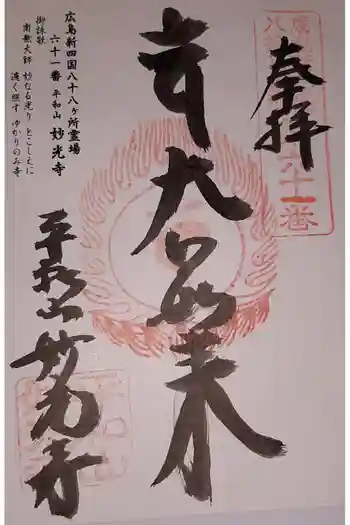 奉拝
大日如来
平和山
妙光寺
広島新四国八十八ヶ所霊場
六十一番 平和山 妙光寺
御詠歌
南無大師 妙なる光り とこしえに
遍く照す ゆかりのみ寺
六十一番